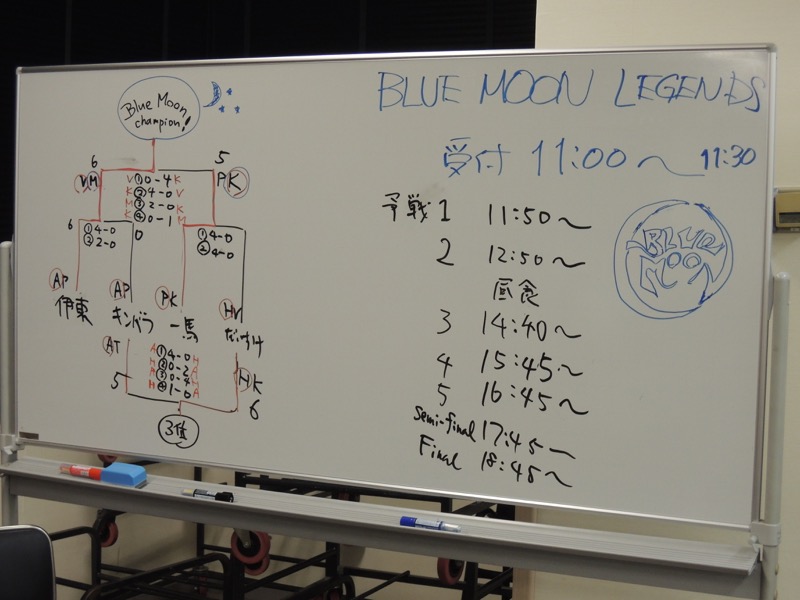 BLUE MOON LEGENDS
受付 11:00〜 11:30
予戦 1 11:50〜
2 12:50〜
昼食
3 14:40〜
4 15:45〜
5 16:45〜
Semi-final 17:45〜
Final 18:45〜
BLUE
MOON
Blue Moon
champion!
6 5
VM PK
V ① 0-4 K
K ② 4-0 V
M ③ 2-0 K
K ④ 0-1 M
6 ① 4-0 0 ① 4-0
② 2-0 ② 4-0
AP AP PK HV
伊東 キンバラ 一馬
AT HK
A ① 4-0 H
H ② 0-2
③ 0-4
H ④ 1-0 A
5 6
3位